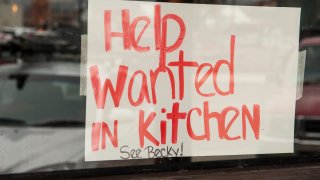 Help
Wanted
IN KitcHEN
See Becky!